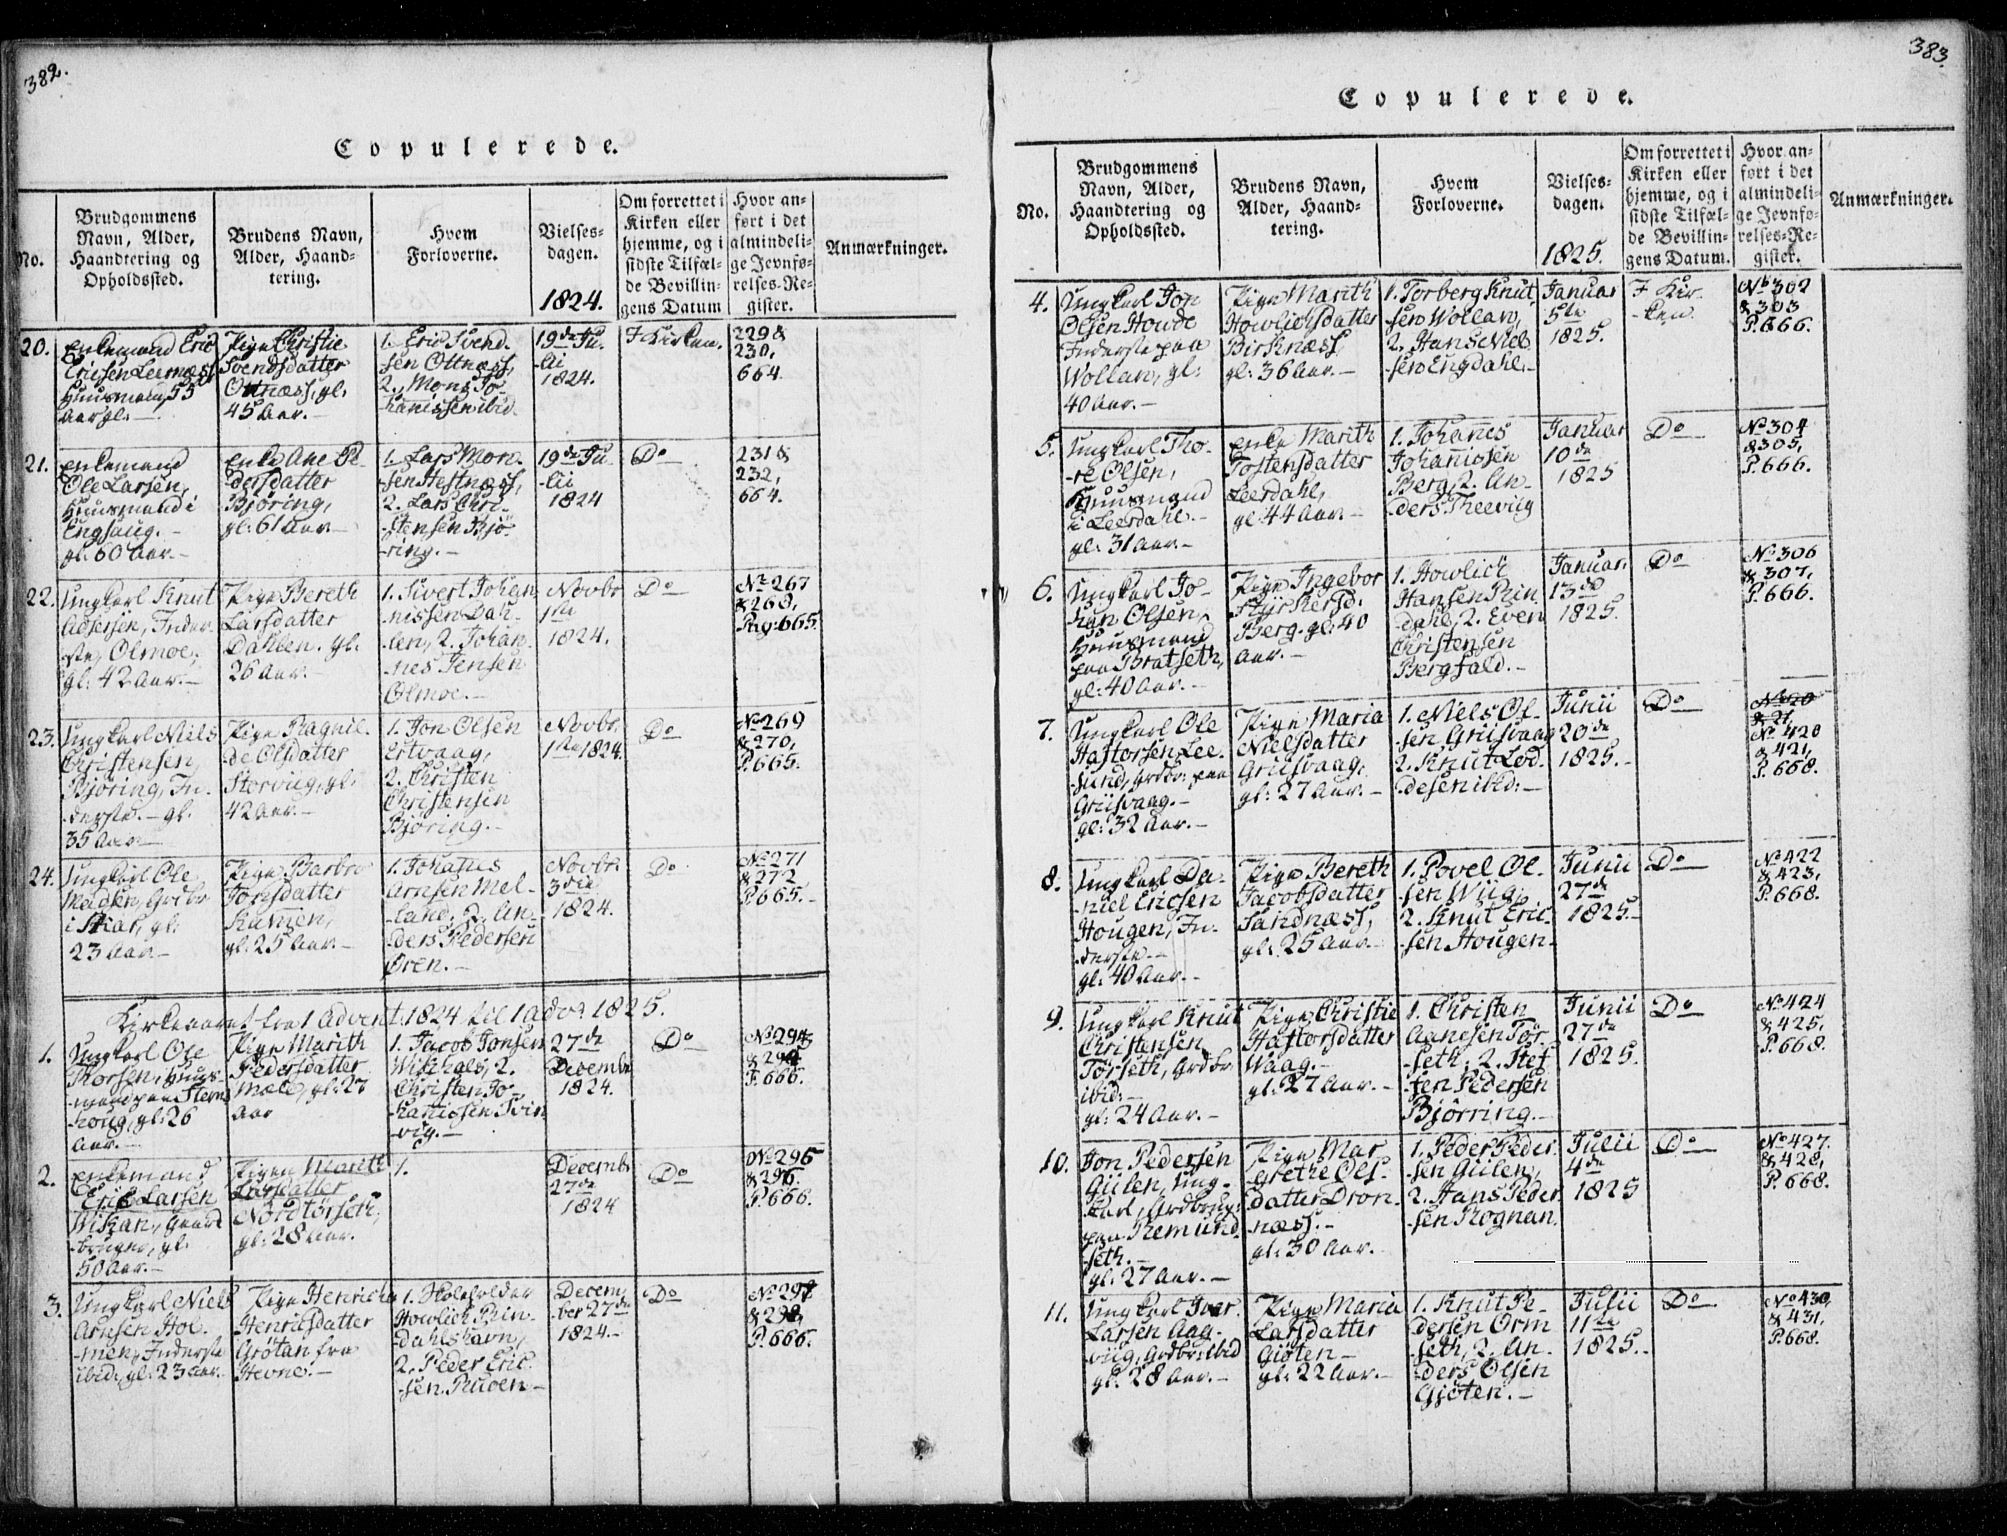 382.
Copulerede.
No.
Brudgommens
Navn, Alder,
Haandtering og
Opholdssted.
Brudens Navn,
Alder, Haand-
tering.
Hvem
Forloverne.
Vielses-
dagen.
1824.
Om forrettet i
Kirken eller
hjemme, og i
sidste Tilfæl-
de Bevillin-
gens Datum
Hvor an-
ført i det
almindeli-
ge Jevnfø-
relses-Re-
gister.
Anmærkninger.
20.
Enkemand Eric
Ericsen Leernæss
Huusmand, 55
aar gl. —
Pige Christie
Svendsdatter
Ottnæss, gl.
45 Aar. —
1. Eric Svend-
sen Ottnæss,
2. Mons Jo-
hanissen ibid.
19de Ju-
lii
1824.
I Kirken.
229 &
230,
664.
21.
Enkemand
Ole Larsen,
Huusmand i
Engsaug. —
gl. 60 Aar. —
Enke Ane Pe-
dersdatter
Björing,
gl: 61 Aar. —
1. Lars Mon-
sen Hestnæss,
2. Lars Chri-
stensen Bjö-
ring. —
19de Ju-
lii
1824
Do
231 &
232,
664.
22.
Ungkarl Knut
Adsersen, Inder-
ste, Olmoe,
gl: 42 Aar. —
Pige Bereth
Larsdatter
Dahlen. gl.
26 Aar. —
1. Sivert Johan-
nissen Dah-
len, 2. Johan-
nes Jensen
Olmoe. —
Novbr
1ste
1824.
Do
No 267
& 268,
Pag: 665.
23.
Ungkarl Niels
Christensen,
Björing, In-
derste. — gl.
35 Aar —
Pige Ragnil-
de Olsdatter
Storviig, gl.
42 Aar. —
1. Jon Olsen
Ertvaag,
2. Christen
Christensen
Björing. —
Novbr.
1ste 1824.
Do
No 269
& 270,
P. 665.
24.
Ungkarl Ole
Madsen, Grdbr
i Skar, gl.
23 Aar. —
Pige Barbro
Jonsdatter
gl: 25 Aar. —
1. Johanes
Arnsen Mel-
land, 2. An-
ders Pedersen
Ören. —
Novbr.
3die
1824.
Do
No 271
& 272
P. 665. —
Kirkeaaret fra 1 Advent 1824 til 1 Advt 1825.
1.
Ungkarl Ole
Thorsen, Huus-
mand paa Steens-
houg, gl: 26
Aar. —
Pige Marith
Pedersdatter
Mæle, gl: 27
Aar
1. Jacob Jonsen
Wikhals, 2.
Christen Jo-
hanissen Svin-
vig. —
27de
Decembr
1824.
Do
P. 666.
2.
Enkemand
Eric Larsen
Wikan, Gaard-
bruger, gl.
50 Aar. —
Pigen Marith
Larsdatter
Nordtörseth,
gl: 28 Aar.
1.
Decembr
27de
1824
Do
No 295
& 296.
P. 666.
3.
Ungkarl Niels
Arnsen Hol-
men, Inderste
ibid., gl: 23 aar. —
Pige Henricha
Henricsdatter
Grötan fra
Hevne. —
1. Skolholder
Howlich Rin-
dahlshavn,
2. Peder Eric-
sen Ruoen —
Decem-
ber 27de
1824. —
Do
No 297
& 298,
P. 666.
383.
Copulerede.
No.
Brudgommens
Navn, Alder,
Haandtering og
Opholdssted.
Brudens Navn,
Alder, Haand-
tering.
Hvem
Forloverne.
Vielses-
dagen.
1825.
Om forrettet i
Kirken eller
hjemme, og i
sidste Tilfæl-
de Bevillin-
gens Datum.
Hvor an-
ført i det
almindeli-
ge Jevnfø-
relses-Re-
gister.
Anmærkninger.
4.
Ungkarl Jon
Olsen Howde
Inderste paa
Wollan, gl.
40 Aar. —
Pige Marith
Howlichsdatter
Birknæss
gl: 36 Aar. —
1. Torberg Knut-
sen Wollan,
2. Hans Niel-
sen Engdahl. —
Januar
5te
1825.
I Kir-
ken.
No 302
& 303
P. 666.
5.
Ungkarl Tho-
re Olsen,
Huusmand
i Leerdahl. —
gl: 31 Aar. —
Enke Marith
Tostensdatter
Leerdahl,
gl: 44 Aar. —
1. Johanes
Johanissen
Berg, 2. An-
ders Theeviig
Januar
10de
1825
Do
No 304
& 305,
P. 666.
6.
Ungkarl Jo-
han Olsen,
Huusmand
paa Bratseth,
gl: 40 Aar. —
Pige Ingebor
Styrkersd.
Berg. gl: 40
Aar. —
1. Howlich
Hansen Rin-
dahl, 2. Even
Christensen
Bergfald. —
Januar
13de
1825.
Do
No 306
& 307,
P. 666.
7.
Ungkarl Ole
Hastorsen Lee-
sund, Grdbr. paa
Griisvaag. —
gl: 32 Aar. —
Pige Maria
Nielsdatter
Griisvaag,
gl: 27 Aar. —
1. Niels Ol-
sen Griisvaag
2. Knut Lod-
desen ibid. —
Junii
20de
1825. —
Do
No 20
& 21,
No 420
& 421,
P. 668.
8.
Ungkarl Da-
niel Ericsen
Hougen, In-
derste —
gl: 40 Aar. —
Pige Bereth
Jacobsdatter
Sandnæss,
gl: 25 Aar. —
1. Povel Ol-
sen Wiig,
2. Knut Eric-
sen Hougen —
Junii
27de
1825. —
Do
No 422
& 423,
P. 668.
9.
Ungkarl Knut
Christensen
Törseth, Grdbr.
ibid. —
gl: 24 Aar. —
Pige Christie
Hastorsdatter
Waag. —
gl: 27 Aar. —
1. Christen
Aandsen Tör-
seth, 2. Stef-
fen Pedersen
Bjørring. —
Junii
27de
1825.
Do
No 424
& 425,
P. 668.
10.
Jon Pedersen
Giilen, Ung-
karl, Grdbrug.
paa Remund-
seth. —
gl: 27 Aar. —
Pige Mar-
grethe Ols-
datter Dron-
næss. —
gl: 30 Aar.
1. Peder Peder-
sen Giilen,
2. Hans Peder-
sen Rognan.
Julii
4de
1825
Do
No 427.
& 428,
P. 668.
11.
Ungkarl Iver
Larsen Aag-
viig, Grdbr: ibid
gl: 28 Aar. —
Pige Maria
Larsdatter
Giöten —
gl: 22 Aar. —
1. Knut Pe-
dersen Orm-
seth, 2. An-
ders Olsen
Gjöten. —
Julii
11te
1825. —
Do
No 430,
& 431,
P. 668.